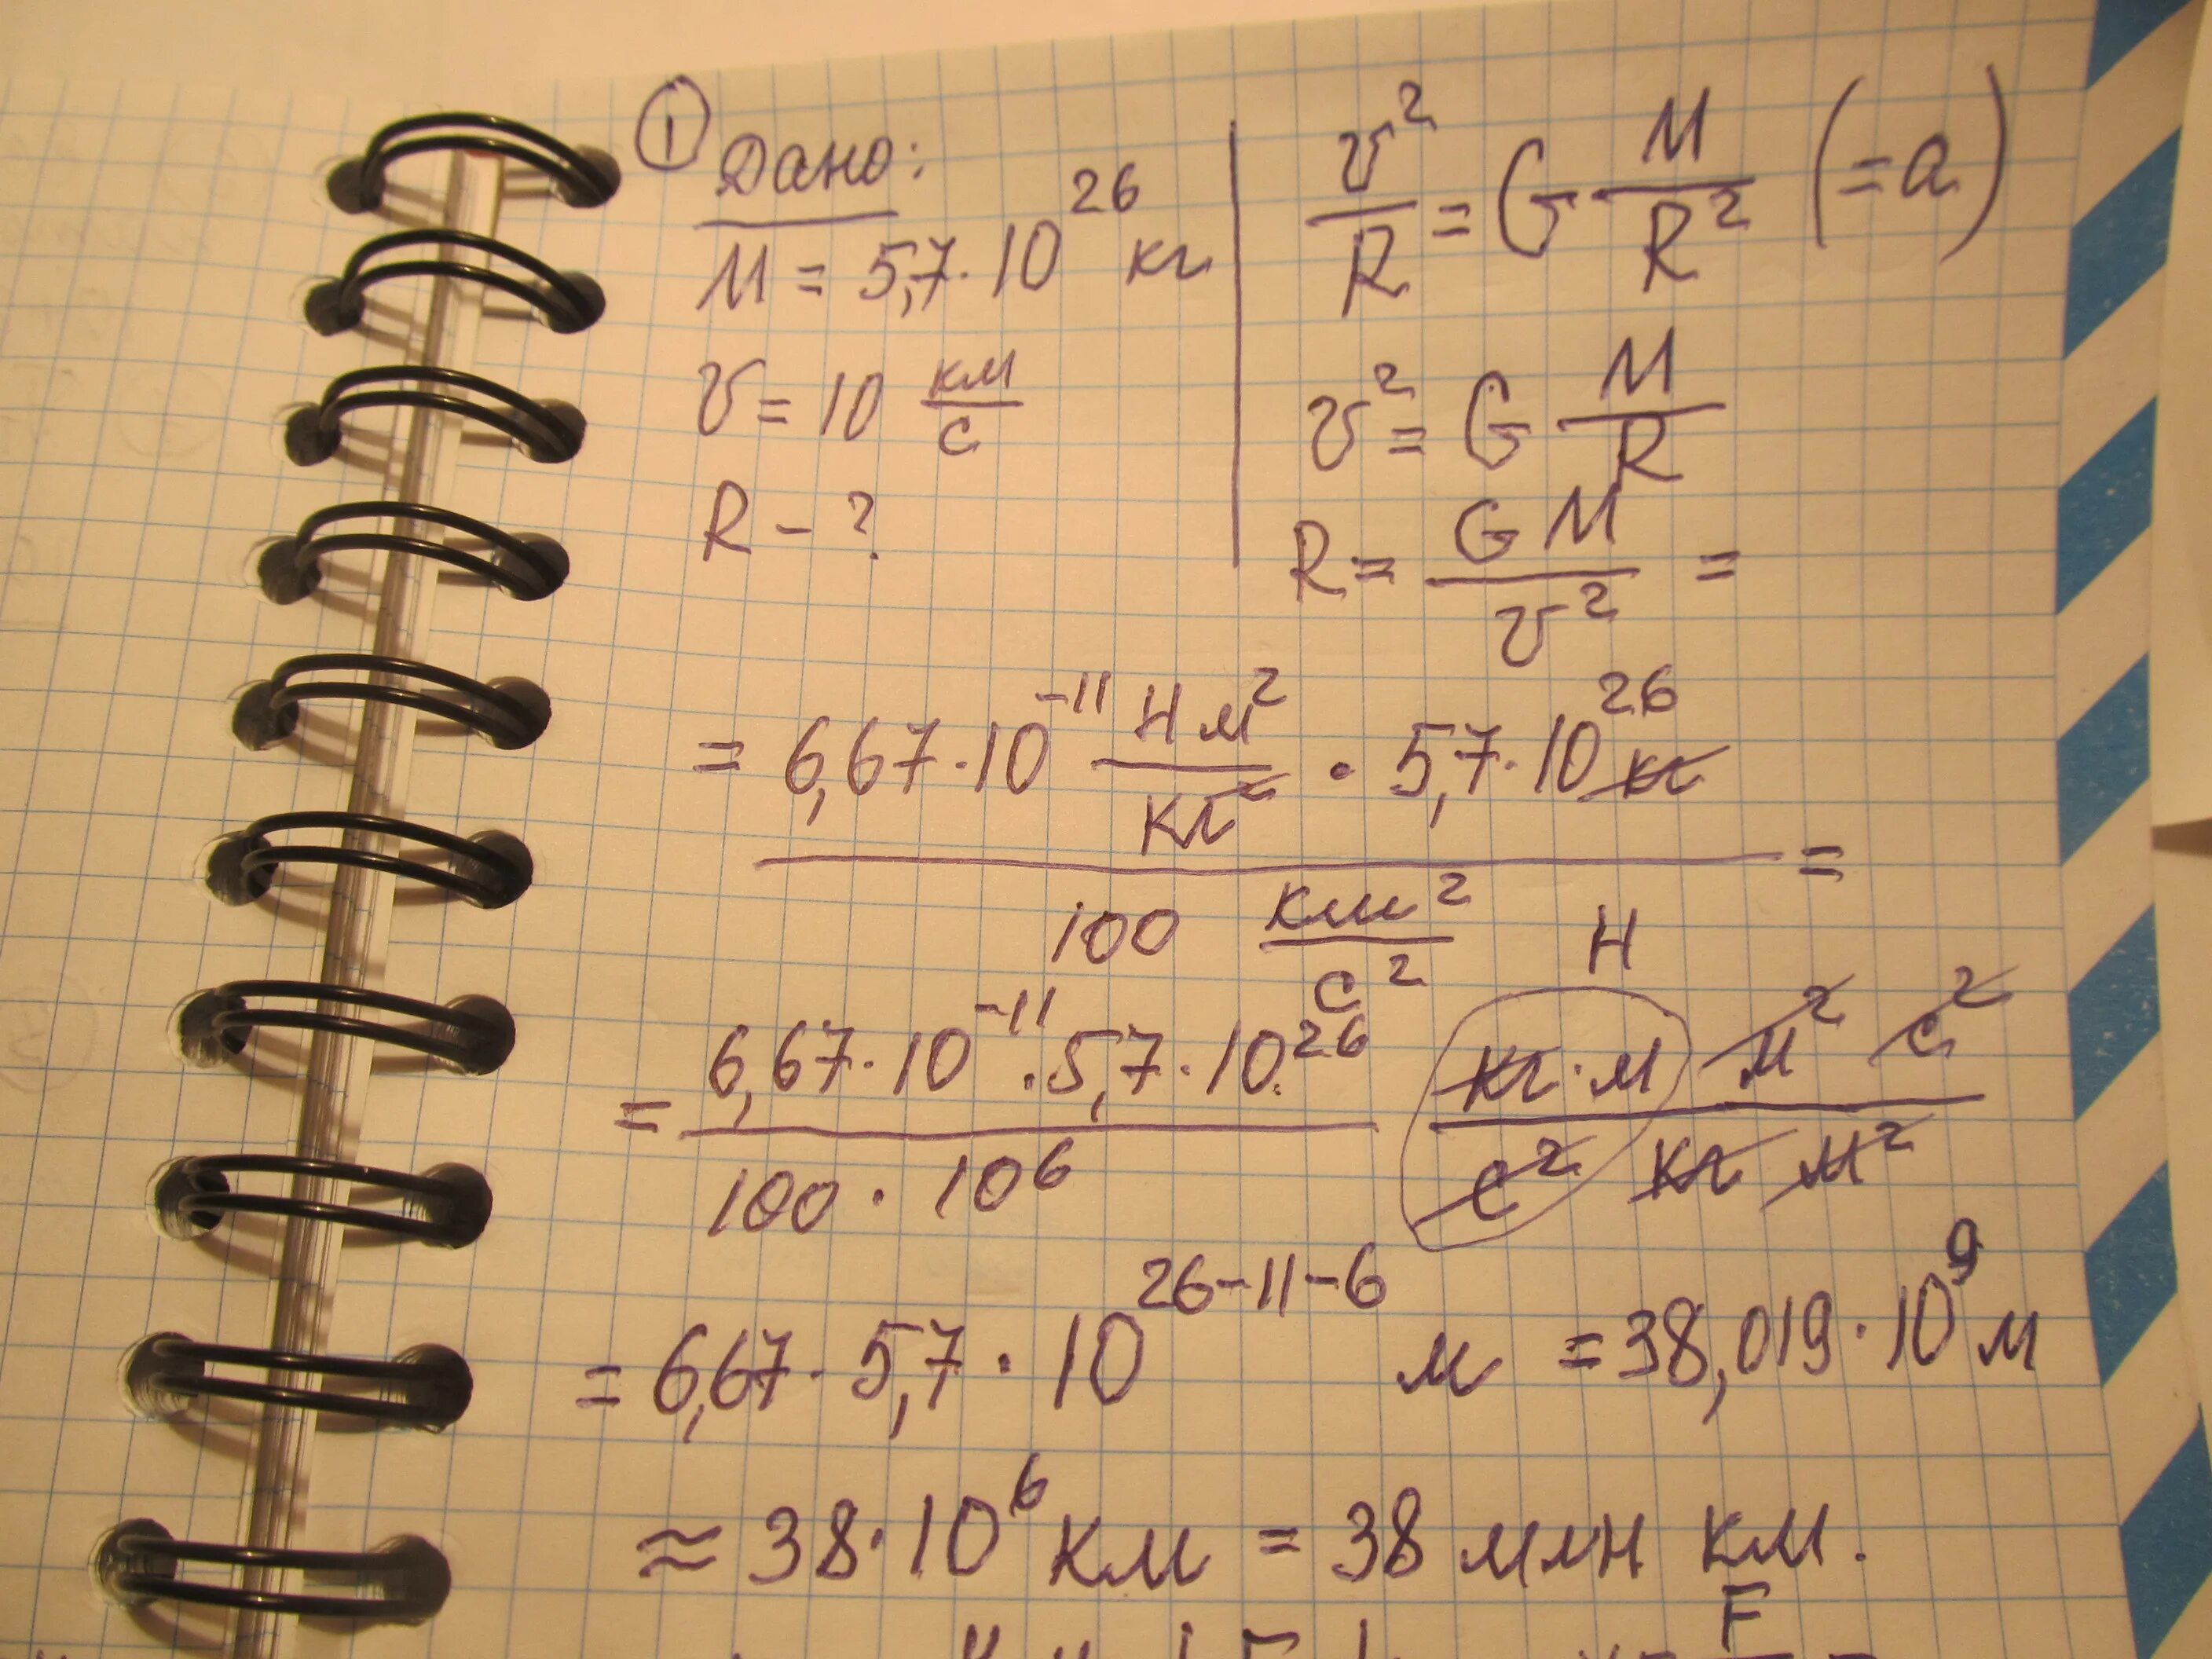 ① Дано:
M = 5,7·10²⁶ кг
v = 10 км/с
R – ?
v²/R = G M/R² (=a)
v² = G M/R
R = GM/v² =
= (6,67·10⁻¹¹ Нм²/кг² · 5,7·10²⁶ кг) / (100 км²/с²) =
Н
= (6,67·10⁻¹¹·5,7·10²⁶) / (100·10⁶) (кг·м м² с²) / (с² кг м²)
= 6,67·5,7·10²⁶⁻¹¹⁻⁶ м = 38,019·10⁹ м
≈ 38·10⁶ км = 38 млн км.
F